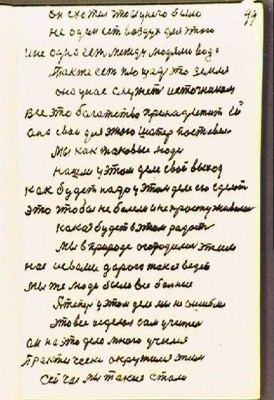 99
он схотел этого у него было
не один ест воздух для этого
и не одна ест между людями вода
Также ест площадь это земля
она у нас служит источником
Все это богатство принадлежит ей
она свои для этого шатер поставил
Мы как таковые люди
нашли у этом деле свой выход
как будет надо у этом деле его сделат
это чтобы не болели и не простуживалис
какая будет в этом радост
Мы в природе огородили этим
нас и вами дорога такая ведет
Мы же люди были все больные
А теперь у этом деле мы не ошиблис
Это все сделал сам учител
он на это дело много учился
Практически окружился этим
сейчас мы такие стали